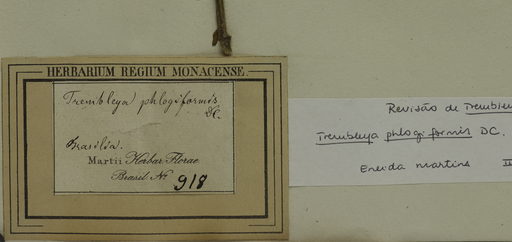 HERBARIUM REGIUM MONACENSE.
Trembleya phlogiformis
DC.
Brasilia.
Martii Herbar. Florae
Brasil. No. 918
Revisão de
Trembleya phlogiformis DC.
Eneida Martins